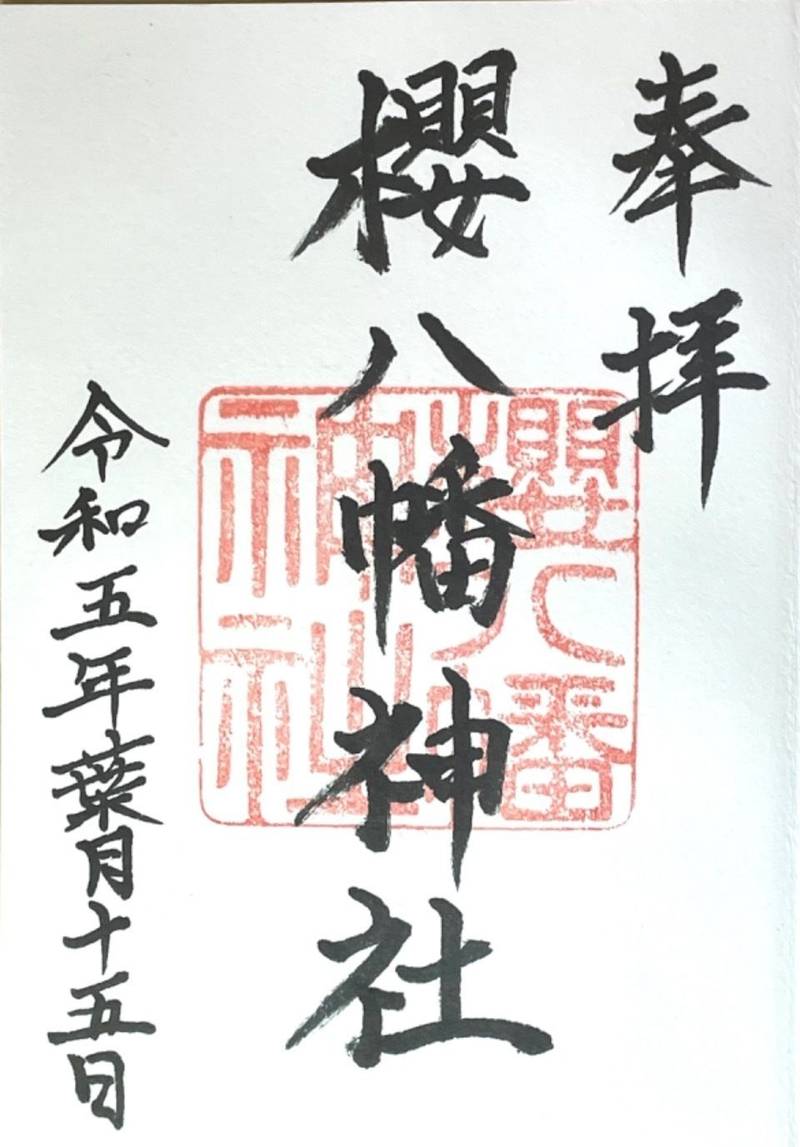 奉拝
櫻八幡神社
櫻八幡
神社
令和五年葉月十五日